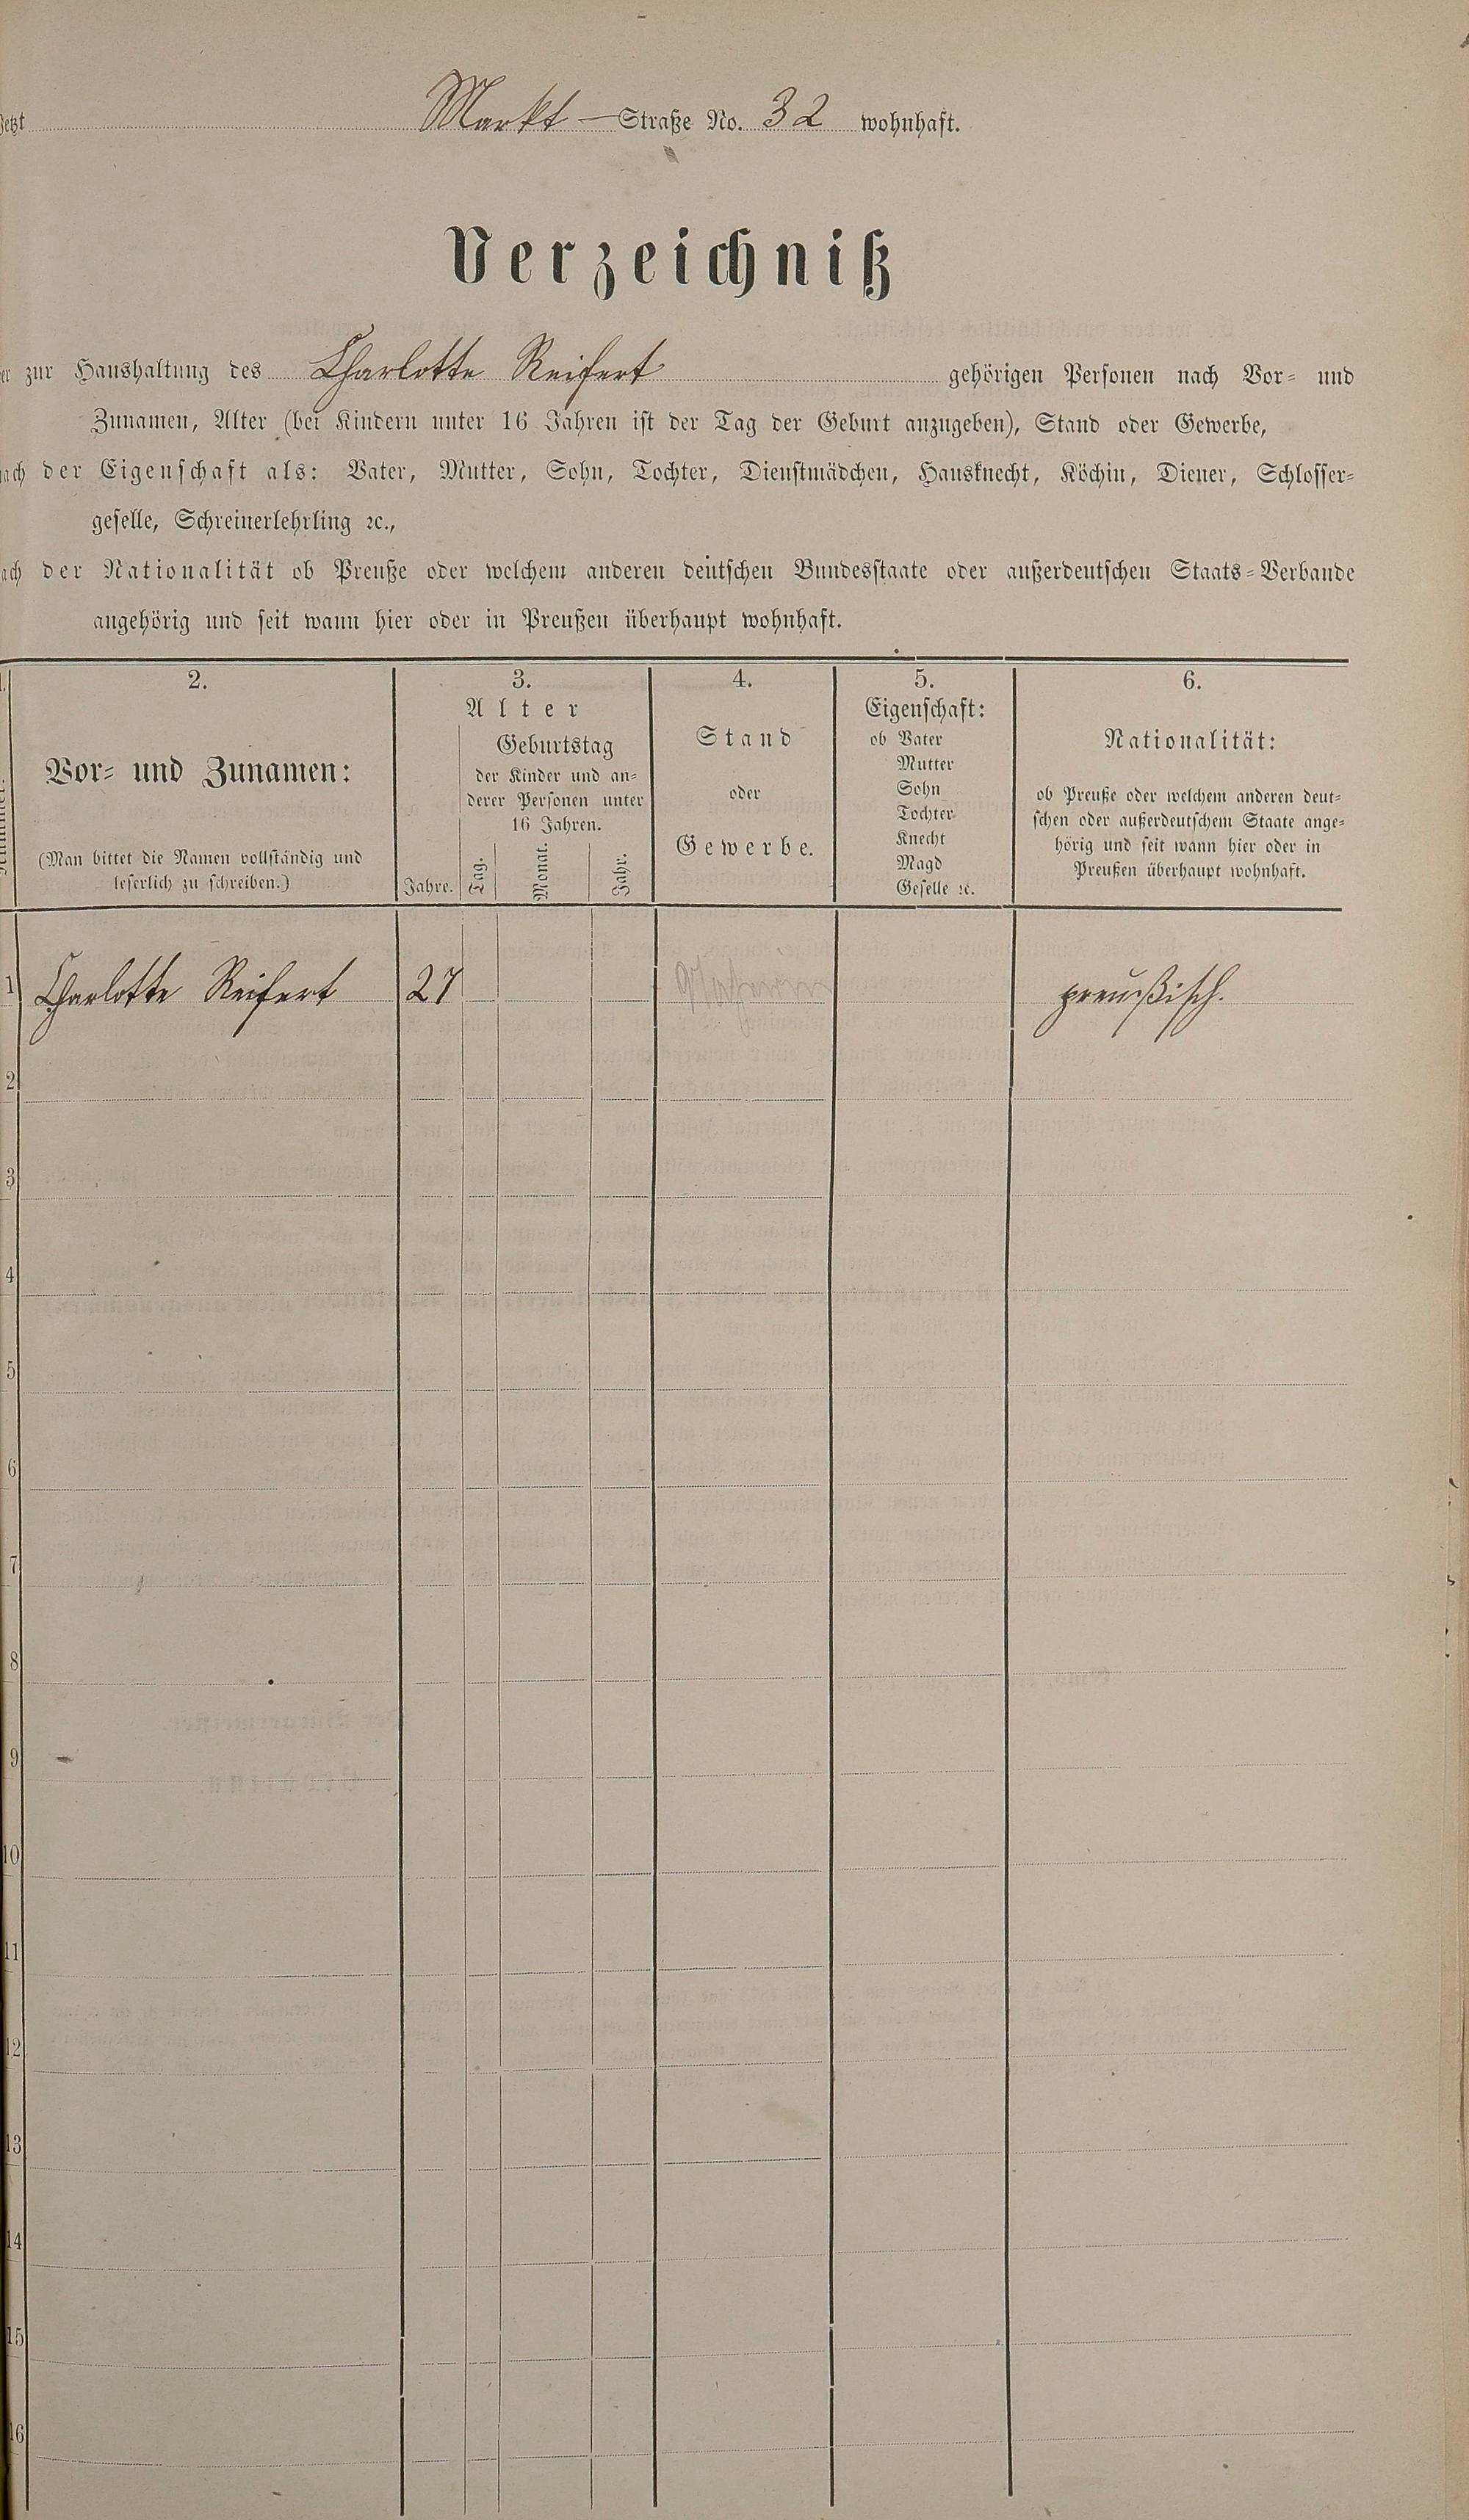 Jetzt Markt-Straße No. 32 wohnhaft.
Verzeichniß
er zur Haushaltung des Charlotte Reifert gehörigen Personen nach Vor- und
Zunamen, Alter (bei Kindern unter 16 Jahren ist der Tag der Geburt anzugeben), Stand oder Gewerbe,
nach der Eigenschaft als: Vater, Mutter, Sohn, Tochter, Dienstmädchen, Hausknecht, Köchin, Diener, Schlosser-
geselle, Schreinerlehrling ꝛc.,
ach der Nationalität ob Preuße oder welchem anderen deutschen Bundesstaate oder außerdeutschen Staats-Verbande
angehörig und seit wann hier oder in Preußen überhaupt wohnhaft.
2.
Vor- und Zunamen:
(Man bittet die Namen vollständig und
leserlich zu schreiben.)
3.
Alter
Geburtstag
der Kinder und an-
derer Personen unter
16 Jahren.
Jahre. Tag. Monat. Jahr.
4.
Stand
oder
Gewerbe.
5.
Eigenschaft:
ob Vater
Mutter
Sohn
Tochter
Knecht
Magd
Geselle ꝛc.
6.
Nationalität:
ob Preuße oder welchem anderen deut-
schen oder außerdeutschem Staate ange-
hörig und seit wann hier oder in
Preußen überhaupt wohnhaft.
1 Charlotte Reifert 27 preußisch.
2
3
4
5
6
7
8
9
10
11
12
13
14
15
16